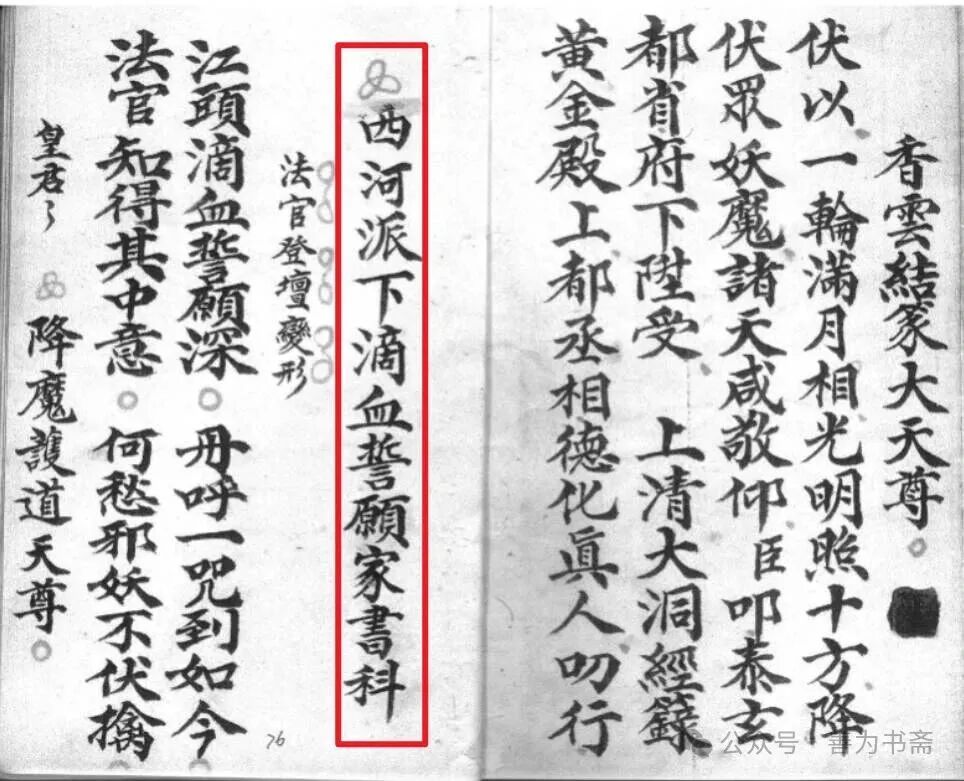 香雲結篆大天尊
伏以一輪滿月相光明照十方降
伏眾妖魔諸天咸敬仰臣叩泰玄
都省府下陞受 上清大洞經籙
黃金殿上都丞相德化眞人叨行
西河派下滴血誓願家書科
法官登壇變形
江頭滴血誓願深。毋呼一咒到如今。
法官知得其中意。何愁邪妖不伏擒
皇君〻 降魔護道天尊。
76
公众号 善为书斋